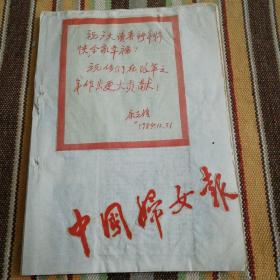 祝广大读者新年愉
快合家幸福!
祝你们在改革之
年作出更大贡献!
康克清
1984.12.31
中國婦女報